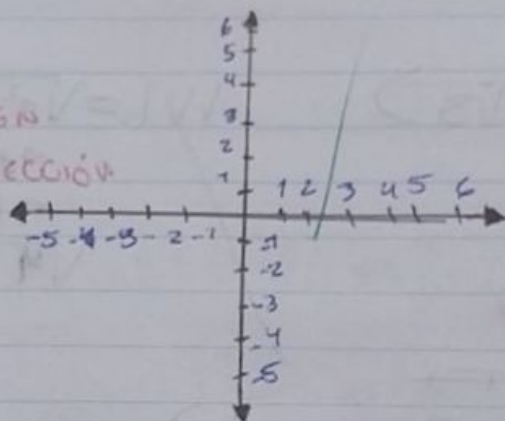 6
5
4
3
2
ección
1 1 2 3 4 5 6
-5 -4 -3 -2 -1 -1
-2
-3
-4
-5